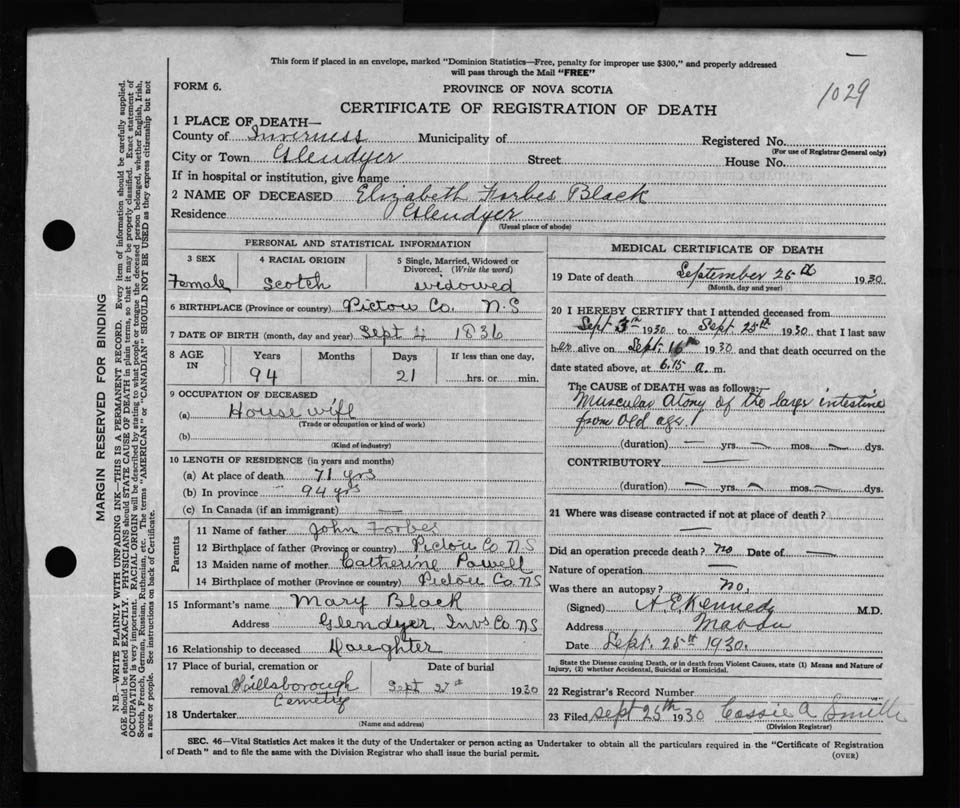 This form if placed in an envelope, marked "Dominion Statistics—Free, penalty for improper use $300," and properly addressed
will pass through the Mail "FREE"
FORM 6.
PROVINCE OF NOVA SCOTIA
1029
CERTIFICATE OF REGISTRATION OF DEATH
1 PLACE OF DEATH—
County of Inverness Municipality of Registered No.
(For use of Registrar General only)
City or Town Glendyer Street House No.
If in hospital or institution, give name
2 NAME OF DECEASED Elizabeth Forbes Black
Residence Glendyer
(Usual place of abode)
PERSONAL AND STATISTICAL INFORMATION
3 SEX 4 RACIAL ORIGIN 5 Single, Married, Widowed or
Divorced. (Write the word)
Female Scotch widowed
6 BIRTHPLACE (Province or country) Pictou Co. N.S
7 DATE OF BIRTH (month, day and year) Sept 4 1836
8 AGE IN Years Months Days If less than one day,
94 21 hrs. or min.
9 OCCUPATION OF DECEASED
(a) House wife
(Trade or occupation or kind of work)
(b)
(Kind of industry)
10 LENGTH OF RESIDENCE (in years and months)
(a) At place of death 71 yrs
(b) In province 94 yrs
(c) In Canada (if an immigrant) —
Parents
11 Name of father John Forbes
12 Birthplace of father (Province or country) Pictou Co N S
13 Maiden name of mother Catherine Powell
14 Birthplace of mother (Province or country) Pictou Co. NS
15 Informant's name Mary Black
Address Glendyer, Invs Co. NS
16 Relationship to deceased Daughter
17 Place of burial, cremation or Date of burial
removal Hillsborough Sept 27th 1930
Cemetry
18 Undertaker
(Name and address)
MEDICAL CERTIFICATE OF DEATH
19 Date of death September 25th 1930
(Month, day and year)
20 I HEREBY CERTIFY that I attended deceased from
Sept 3rd 1930 to Sept 25th 1930, that I last saw
her alive on Sept. 16th 1930 and that death occurred on the
date stated above, at 6.15 a. m.
The CAUSE OF DEATH was as follows:—
Muscular atony of the large intestine
from old age.
(duration) — yrs. — mos. — dys.
CONTRIBUTORY —
(duration) — yrs. — mos. — dys.
21 Where was disease contracted if not at place of death?
—
Did an operation precede death? no Date of —
Nature of operation —
Was there an autopsy? no,
(Signed) A E Kennedy M.D.
Address Mabou
Date Sept. 25th 1930.
State the Disease causing Death, or in death from Violent Causes, state (1) Means and Nature of
Injury, (2) whether Accidental, Suicidal or Homicidal.
22 Registrar's Record Number
23 Filed Sept 25th 1930 Cassie A Smith
(Division Registrar)
SEC. 46—Vital Statistics Act makes it the duty of the Undertaker or person acting as Undertaker to obtain all the particulars required in the "Certificate of Registration
of Death" and to file the same with the Division Registrar who shall issue the burial permit.
(OVER)
MARGIN RESERVED FOR BINDING
N.B.—WRITE PLAINLY WITH UNFADING INK—THIS IS A PERMANENT RECORD. Every item of information should be carefully supplied.
AGE should be stated EXACTLY. PHYSICIANS should STATE CAUSE OF DEATH in plain terms, so that it may be properly classified. Exact statement of
OCCUPATION is very important. RACIAL ORIGIN will be described by stating to what people or tongue the deceased person belonged, whether English, Irish,
Scotch, French, German, Russian, Ruthenian, etc. The terms "AMERICAN" or "CANADIAN" SHOULD NOT BE USED as they express citizenship but not
a race or people. See instructions on back of Certificate.